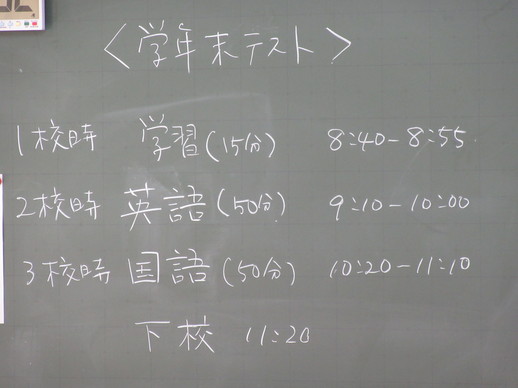 <学年末テスト>
1校時 学習(15分) 8:40-8:55
2校時 英語(50分) 9:10-10:00
3校時 国語(50分) 10:20-11:10
下校 11:20